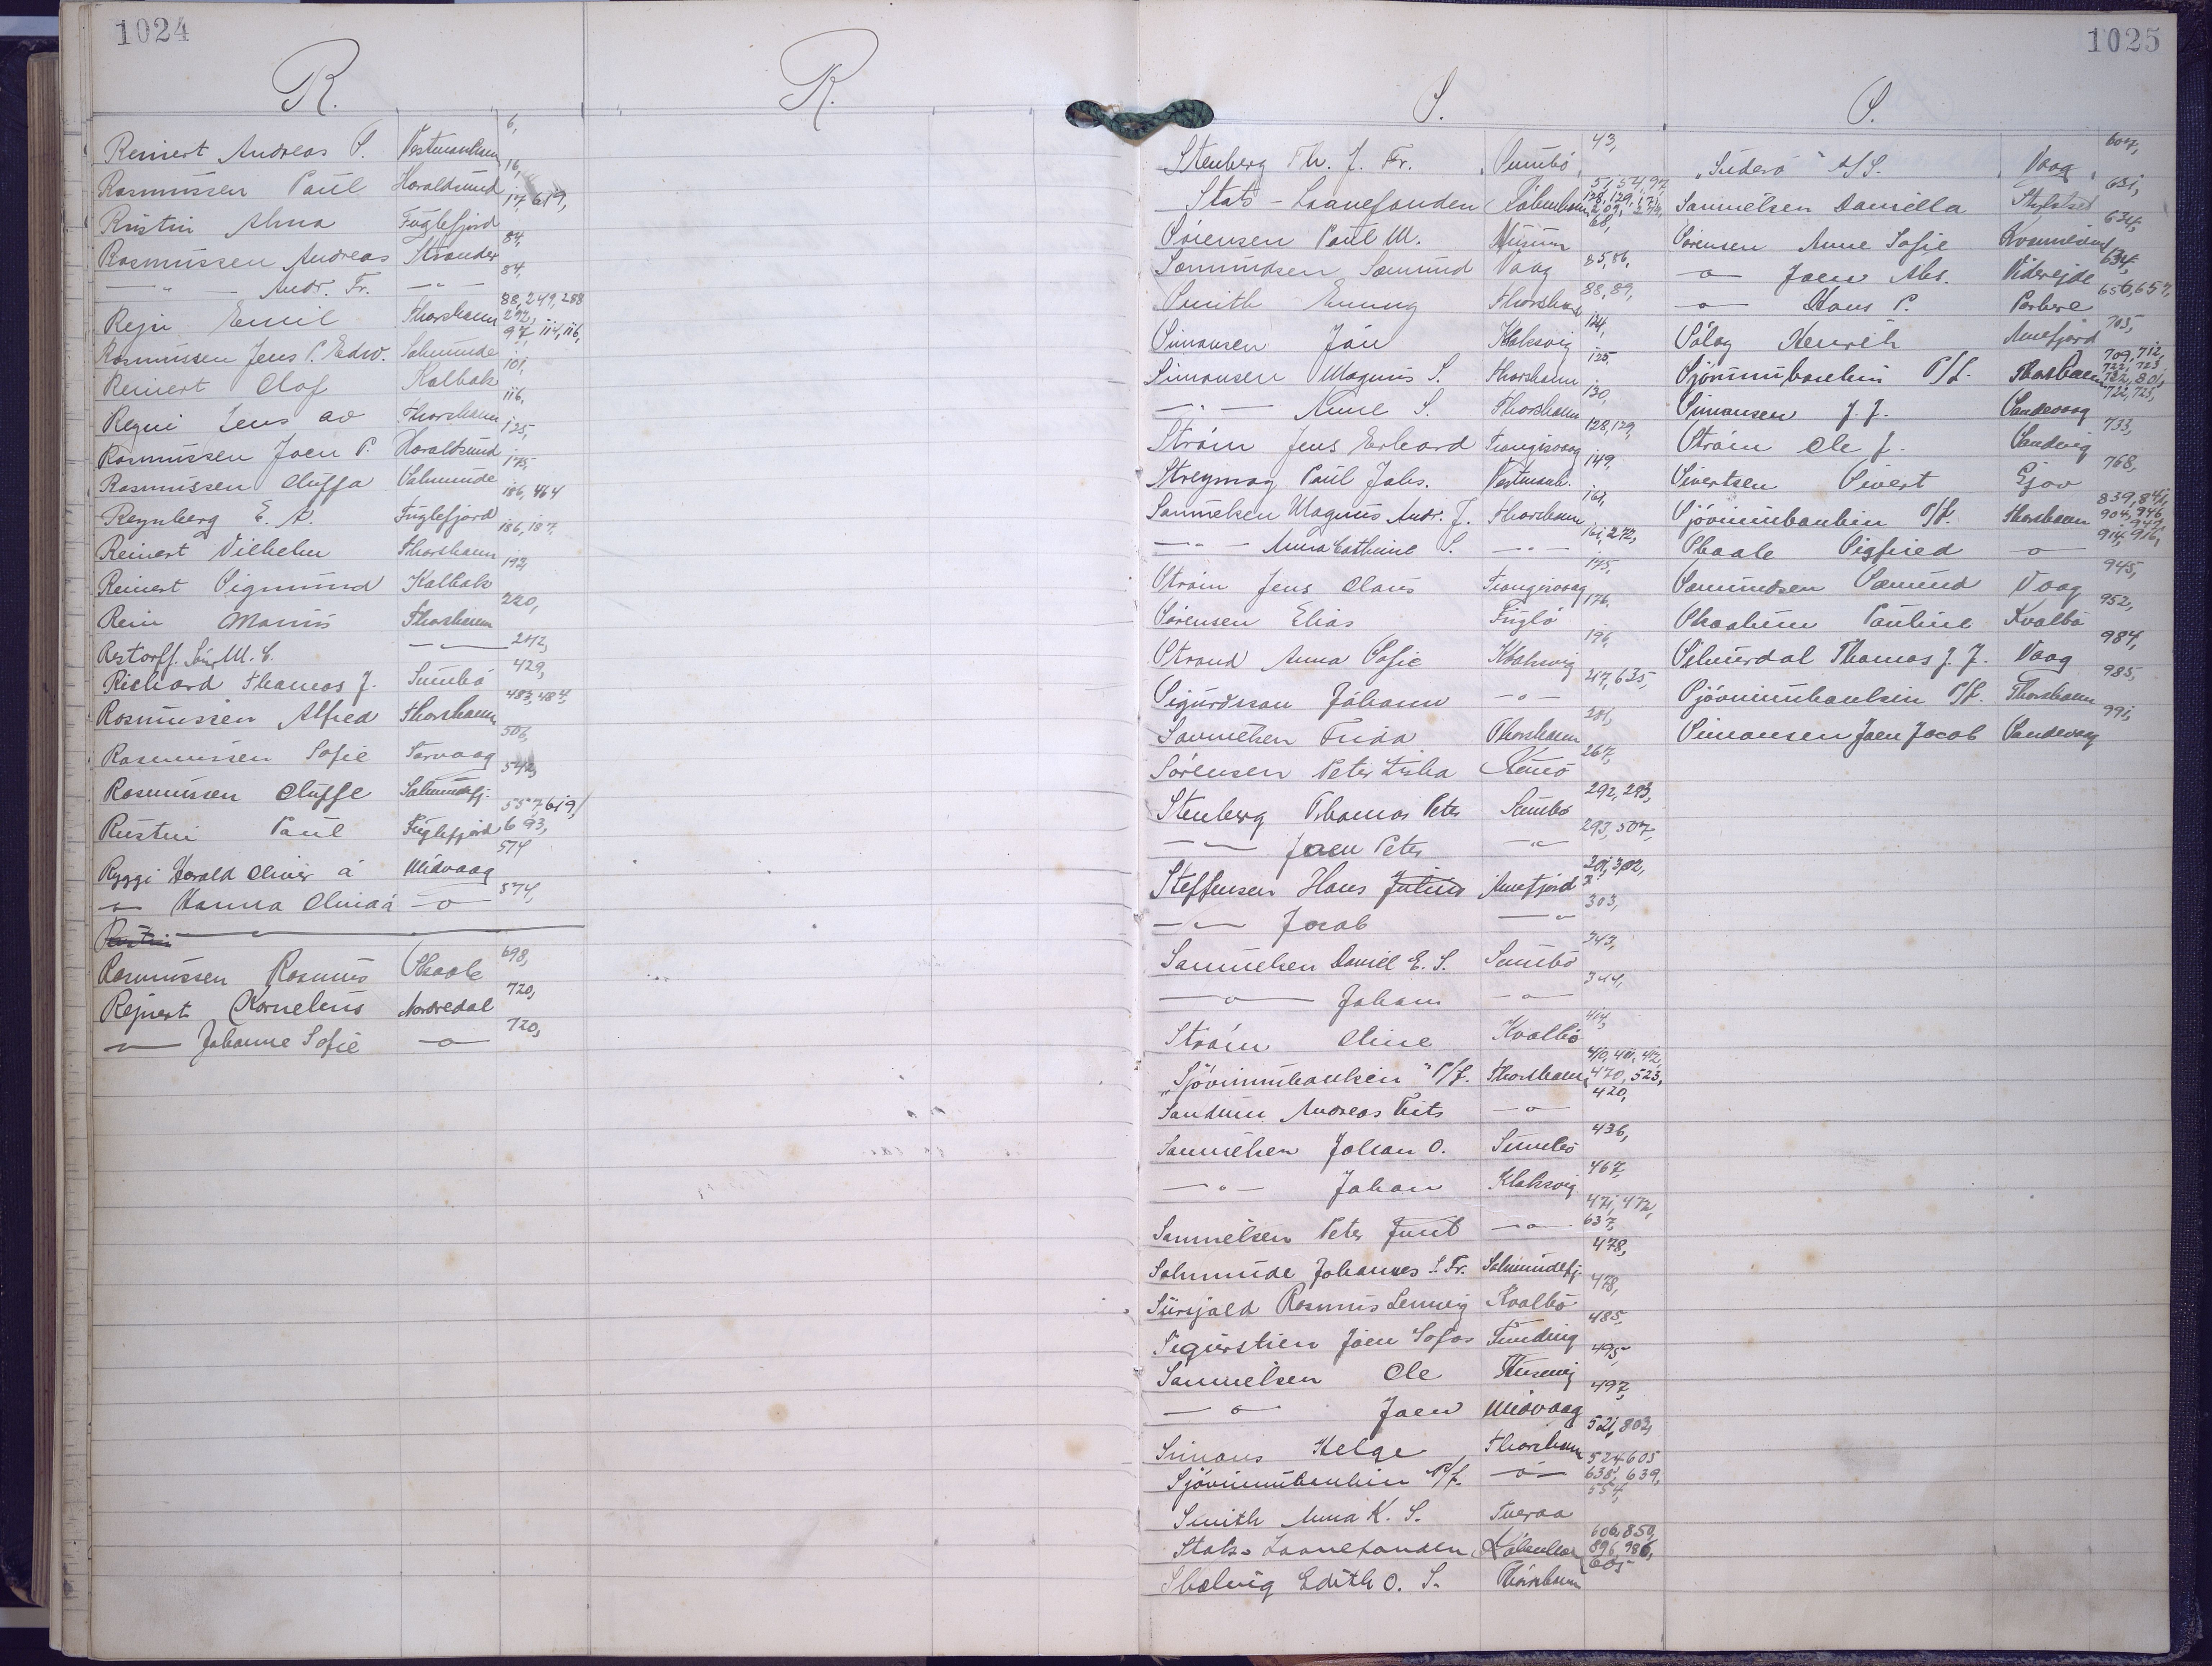 1024
R.
Reinert Andreas S. Vestmanhavn 6,
Rasmussen Paul Haraldsund 16,
Rustin Alma Fuglefjord 17, 619,
Rasmussen Andreas Strander 84,
— " — Andr. Fr. — " — 84,
Rejn Emil Thorshavn 88, 249, 288 292,
Rasmussen Jens P. Edw. Salmunde 97, 114, 116,
Reinert Olaf Kalbak 101,
Regni Jens av Thorshavn 116,
Rasmussen Joen P. Haraldsund 125,
Rasmussen Oluffa Salmunde 175,
Reynberg E. A. Fuglefjord 186, 464
Reinert Vilhelm Thorshavn 186, 187,
Reinert Sigmund Kalbak 192,
Rein Marius Thorshavn 220,
Restorff. M. C. — " — 242,
Richard Thomas J. Sumbö 429,
Rasmussen Alfred Thorshavn 483, 484,
Rasmussen Sofie Sørvaag 506,
Rasmussen Oluffe Salmundefj. 542,
Rustin Paul Fuglefjord 557, 619, 693,
Ryggi Harald Oliver á Midvaag 574
— o — Hanna Olivia á — o — 574,
Rustin
Rasmussen Rasmus Skaale 698,
Rejnert Kornelius Nordredal 720,
— " — Johanne Sofie — o — 720,
R.
1025
S.
Stenberg Th. J. Fr. Sumbö 43,
Stats-Laanefonden København 51, 54, 97, 128, 129, 171, 209, 274,
Sørensen Paul M. Husum 68,
Sæmundsen Sæmund Vaag 85, 86,
Smith Emmy Thorshavn 88, 89,
Simonsen Ján Klaksvig 124,
Simonsen Magnus S. Thorshavn 125,
— " — Anne S. Thorshavn 130,
Strøm Jens Erhard Trangisvaag 128, 129,
Streymoy Paul Johs. Vestmanh. 149,
Samuelsen Magnus Andr. J. Thorshavn 161,
— " — Anna Cathrine S. — " — 161, 272,
Strøm Jens Claus Trangisvaag 175,
Sørensen Elias Fuglø 176,
Strand Anna Sofie Klaksvig 196,
Sigurdsson Jóhann — " — 217, 635,
Samuelsen Frida Thorshavn 281,
Sørensen Peter Kunø 267,
Stenberg Thomas Peter Sumbö 292, 293,
— " — Joen Peter — " — 293, 507,
Steffensen Hans Julius Arnefjord 201, 302,
— " — Jacob — " — 303,
Samuelsen Daniel E. S. Sumbö 343,
— o — Johan — o — 344,
Strøm Oline Kvalbö 414,
"Sjóvinnubankin" P/f. Thorshavn 410, 411, 412, 470, 523,
Sandum Andreas Frits — o — 420,
Samuelsen Johan O. Sumbö 436,
— " — Johan Klaksvig 467,
Samuelsen Peter Juul — o — 471, 472, 637,
Salmunde Johannes S. Fr. Salmundefj. 478,
Rasmus Kvalbö 478,
Joen Sofus Funding 485,
Samuelsen Ole Husevig 495,
— o — Joen Midvaag 497,
Simons Helge Thorshavn 521, 802,
Sjóvinnubankin P/f. — o — 524, 605 638, 639,
Smith Anna K. S. Tveraa 554,
Stats-Laanefonden København 606, 850, 896, 986,
Skælvig Edith O. S. Thorshavn 605
S.
"Suderø" A/S. Vaag 607,
Samuelsen Daniella 631,
Sørensen Anne Sofie 634,
— o — Joen Abs. Viderejde 634,
— o — Hans P. Porkere 656, 657,
Sólag Henrik Arnefjord 705,
Sjóvinnubankin P/f. Thorshavn 709, 712, 722, 723, 801,
Simonsen J. J. Sandevaag 722, 725,
Strøm Ole J. Sandvig 733,
Sivertsen Sivert Gjov 768,
Sjóvinnubankin P/f. Thorshavn 839, 841, 904, 946, 947,
Skaale Sigfried — o — 914, 916,
Sæmundsen Sæmund Vaag 945,
Skaalum Pauline Kvalbö 952,
Selmerdal Thomas J. J. Vaag 984,
Sjóvinnubankin P/f. Thorshavn 985,
Simonsen Joen Jacob Sandevaag 991,